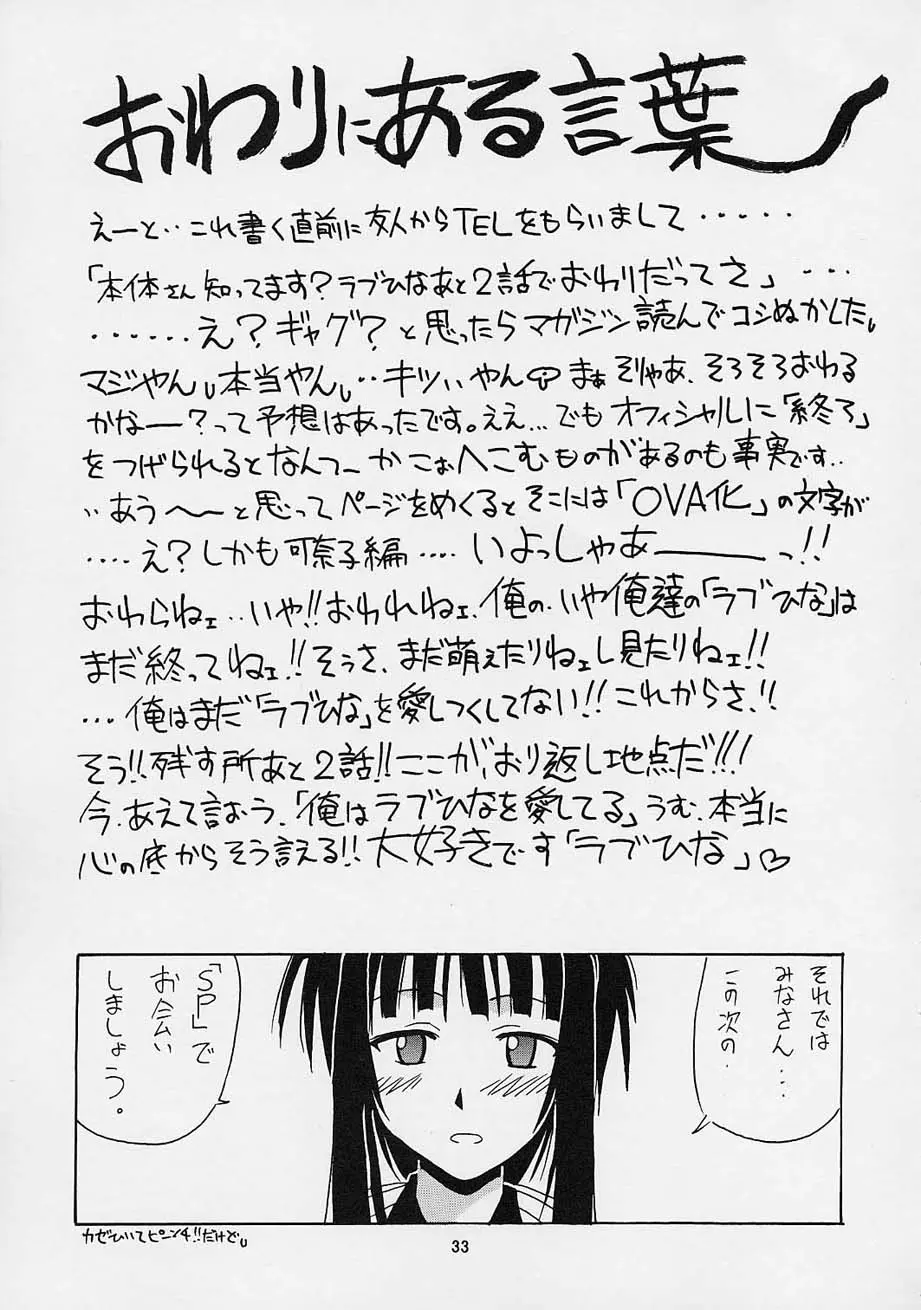 おわりにある言葉
えーと‥これ書く直前に友人からTELをもらいまして・・・・・
「本体さん知ってます?ラブひなあと2話でおわりだってさ」・・・・
・・・・・・え?ギャグ?と思ったらマガジン読んでコシぬかした。
マジやん。本当やん。‥キツいやん まぁそりゃあ、そろそろおわる
かなー?って予想はあったです。ええ…でもオフィシャルに「終了」
をつげられるとなんてーかこぉへこむものがあるのも事実です‥
‥あう〜〜と思ってページをめくるとそこには「OVA化」の文字が
‥‥え?しかも可奈子編‥‥いよっしゃあーーーっ!!
おわらねェ…いや!!おわれねェ、俺の、いや俺達の「ラブひな」は
まだ終ってねェ!!そうさ、まだ萌えたりねェし見たりねェ!!
…俺はまだ「ラブひな」を愛しつくしてない!!これからさ!!
そう!!残す所あと2話!!ここが、おり返し地点だ!!!
今、あえて言おう、「俺はラブひなを愛してる」うむ、本当に
心の底からそう言える!!大好きです「ラブひな」♡
それでは
みなさん…
この次の
「SP」で
お会い
しましょう。
カゼひいてピーンチ!!だけど。
33